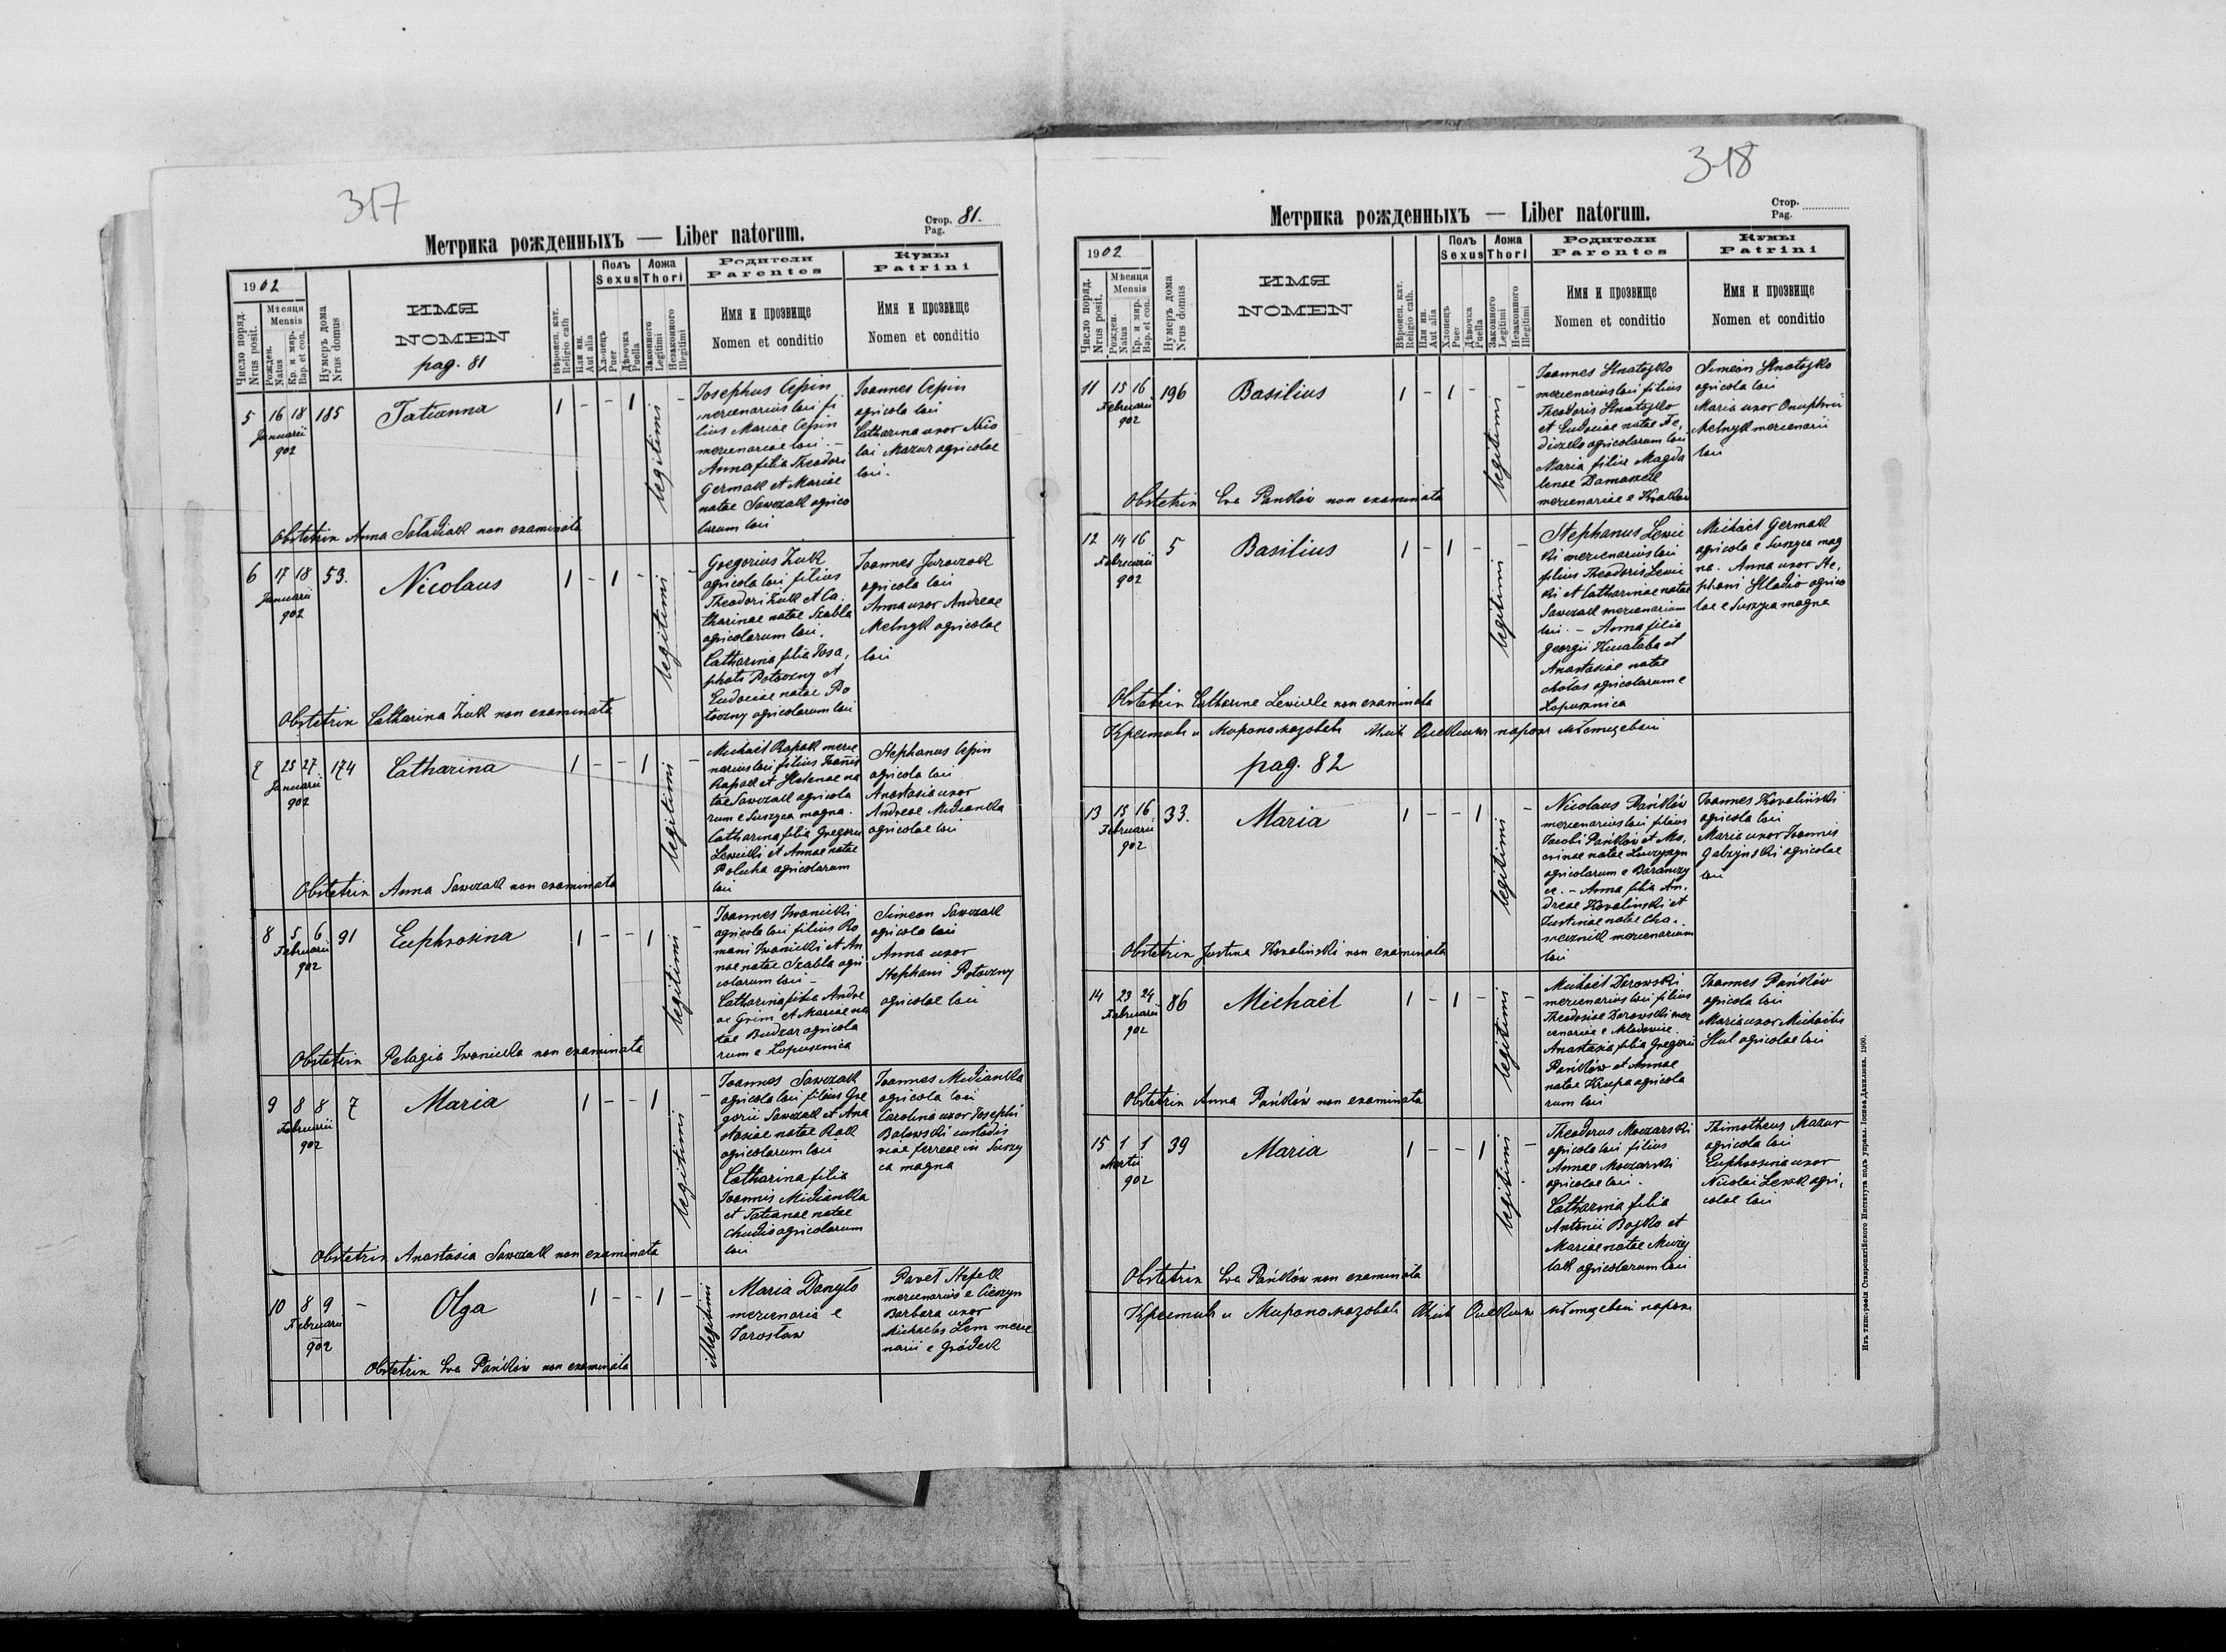 317
Метрика рожденныхъ — Liber natorum.
Стор. 81.
Pag.
1902
Число поряд.
Nrus posit.
Мѣсяця
Mensis
Рожден.
Natus
Кр. и мир.
Bap. et con.
Нумеръ дома
Nrus domus
ИМЯ
NOMEN
pag. 81
Вѣроисп. кат.
Religio cath
Или ин.
Aut alia
Полъ
Sexus
Хлопецъ
Puer
Дѣвочка
Puella
Ложа
Thori
Законного
Legitimi
Незаконного
Illegitimi
Родители
Parentes
Имя и прозвище
Nomen et conditio
Кумы
Patrini
Имя и прозвище
Nomen et conditio
5 16 18 185 Tatianna 1 - - 1 legitimi -
Januarii
902
Josephus Cepin
mercenarius loci fi
lius Mariae Cepin
mercenariae loci. —
Anna filia Theodori
Germak et Mariae
natae Sawczak agrico
larum loci
Joannes Cepin
agricola loci
Catharina uxor Nico
lai Mazur agricolae
loci.
Obstetrix Anna Soladiak non examinata
6 17 18 53. Nicolaus 1 - 1 - legitimi -
Januarii
902
Gregorius Zuk
agricola loci filius
Theodori Zuk et Ca
tharinae natae Szabla
agricolarum loci.
Catharina filia Josa,
phati Potoczny et
Eudociae natae Po
toczny agricolarum loci
Joannes Jurczak
agricola loci
Anna uxor Andreae
Melnyk agricolae
loci
Obstetrix Catharina Zuk non examinata
7 25 27 174 Catharina 1 - - 1 legitimi -
Januarii
902
Michaël Rapak merce
narius loci filius Joannis
Rapak et Helenae na
tae Sawczak agricola
rum e Suszyca magna.
Catharina filia Gregorii
Lewicki et Annae natae
Polucha agricolarum
loci
Stephanus Cepin
agricola loci
Anastasia uxor
Andreae Midianka
agricolae loci
Obstetrix Anna Sawczak non examinata
8 5 6 91 Euphrosina 1 - - 1 legitimi -
Februarii
902
Joannes Iwanicki
agricola loci filius Ro
mani Iwanicki et An
nae natae Szabla agri
colarum loci —
Catharina filia Andre
ae Grim et Mariae na
tae Budzar agricola
rum e Łopusznica
Simeon Sawczak
agricola loci
Anna uxor
Stephani Potoczny
agricolae loci
Obstetrix Pelagia Iwanicka non examinata
9 8 8 7 Maria 1 - - 1 legitimi -
Februarii
902
Joannes Sawczak
agricola loci filius Gre
gorii Sawczak et Ana
stasiae natae Rak
agricolarum loci
Catharina filia
Joannis Midianka
et Tatianae natae
Chudio agricolarum
loci
Joannes Midianka
agricola loci
Carolina uxor Josephi
Balowski custodis
viae ferreae in Suszy
ca magna
Obstetrix Anastasia Sawczak non examinata
10 8 9 - Olga 1 - - 1 - illegitimi
Februarii
902
Maria Danyło
mercenaria e
Jarosław
Paveł Stefek
mercenarius e Cieszyn
Barbara uxor
Michaelis Lem merce
narii e Gródek
Obstetrix Eva Pańków non examinata
318
Метрика рожденныхъ — Liber natorum.
Стор.
Pag.
1902
Число поряд.
Nrus posit.
Мѣсяци
Mensis
Рожден.
Natus
Кр. и мир.
Bap. et con.
Нумеръ дома
Nrus domus
ИМЯ
NOMEN
Вѣроисп. кат.
Religio cath.
Или ин.
Aut alia
Полъ
Sexus
Хлопецъ
Puer
Дѣвочка
Puella
Ложа
Thori
Законного
Legitimi
Незаконного
Illegitimi
Родители
Parentes
Имя и прозвище
Nomen et conditio
Кумы
Patrini
Имя и прозвище
Nomen et conditio
11 15 16 196 Basilius 1 - 1 - legitimi -
Februarii
902
Joannes Hnatyszko
mercenarius loci filius
Theodoris
et Eudociae natae Fe,
agricolarum loci
Maria filia Magda
lenae Damaszek
mercenariae e
Simeon
agricola loci
Maria uxor Onuphrii
Melnyk mercenarii
loci
Obstetrix Eva Pańków non examinata
12 14 16 5 Basilius 1 - 1 - legitimi -
Februarii
902
Stephanus Lewic
ki mercenarius loci
filius Theodoris Lewic
ki et Catharinae natae
Sawczak mercenarium
loci. — Anna filia
Georgii et
Anastasiae natae
agricolarum e
Łopusznica
Michaël Germak
agricola e Suszyca mag
na. Anna uxor Ste,
phani Hladio agrico
lae e Suszyca magna
Obstetrix Catharine Lewicke non examinata
Крестивъ и Миропомазовавъ парохъ мѣстцевый
pag. 82
13 15 16 33. Maria 1 - - 1 legitimi -
Februarii
902
Nicolaus Pańków
mercenarius loci filius
Jacobi Pańków et Ma,
crinae natae
agricolarum e Baranczy
ce. — Anna filia An,
dreae Kovalinski et
Justinae natae Cha,
meznik mercenarium
loci
Joannes Kovalinski
agricola loci
Maria uxor Joannis
Gobzynski agricolae
loci
Obstetrix Justina Kovalinski non examinata
14 23 24 86 Michaël 1 - 1 - legitimi -
Februarii
902
Michaël Dorowski
mercenarius loci filius
Theodosiae Dorowski mer
cenariae e
Anastasia filia Gregorii
Pańków et Annae
natae Krupa agricola
rum loci
Joannes Pańków
agricola loci
Maria uxor Michaelis
Hul agricolae loci
Obstetrix Anna Pańków non examinata
15 1 1 39 Maria 1 - - 1 legitimi -
Martii
902
Theodorus Moczarski
agricola loci filius
Annae Moczarski
agricolae loci.
Catharina filia
Antonii Bojko et
Mariae natae
agricolarum loci
Thimotheus Mazur
agricola loci
Euphrosina uxor
Nicolai agri,
colae loci
Obstetrix Eva Pańków non examinata
Крестивъ и Миропомазовавъ мѣстцевый парохъ
Изъ типо.графіи Ставропигійского Института подъ управл. Іосифа Данилюка. 1900.